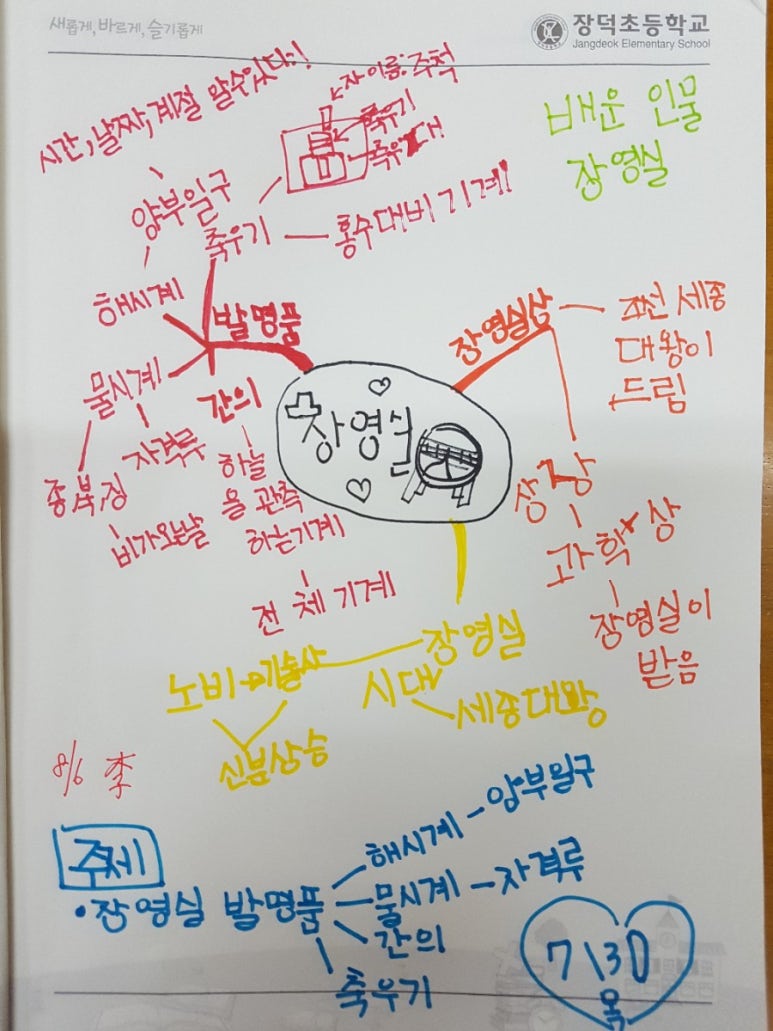 새롭게, 바르게, 슬기롭게
장덕초등학교
Jangdeok Elementary School
배운 인물
장영실
시간, 날짜, 계절 알수있다!
자이름:주척
축우기
축우대
양부일구
축우기
홍수대비 기계!
해시계
발명품
물시계
간의
자격루
종,북,징
비가오는날
하늘
을 관측
하는기계
전체 기계
장영실
장영실상
조선 세종
대왕이
드림
상장
과학 상
장영실이
받음
장영실
노비→기술자
신분상승
시대
세종대왕
8/6 李
주제
•장영실 발명품
해시계 - 양부일구
물시계 - 자격루
간의
축우기
7\30
목